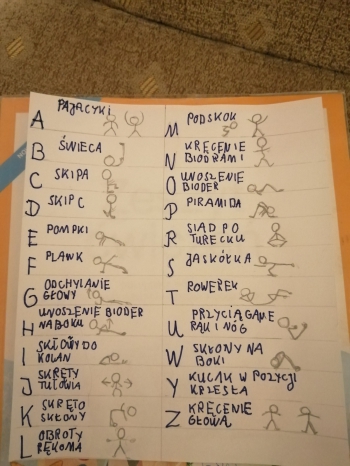 A PAJACYKI
B ŚWIECA
C SKIP A
D SKIP C
E POMPKI
F PLANK
G ODCHYLANIE
GŁOWY
H UNOSZENIE BIODER
NA BOKU
I SKŁONY DO
KOLAN
J SKRĘTY
TUŁOWIA
K SKRĘTO
SKŁONY
L OBROTY
RĘKOMA
M PODSKOK
N KRĘCENIE
BIODRAMI
O UNOSZENIE
BIODER
P PIRAMIDA
R SIAD PO
TURECKU
S JASKÓŁKA
T ROWEREK
U PRZYCIĄGANIE
RĄK I NÓG
W SKŁONY NA
BOKI
Y KUCAK W POZYCJI
KRZESŁA
Z KRĘCENIE
GŁOWĄ